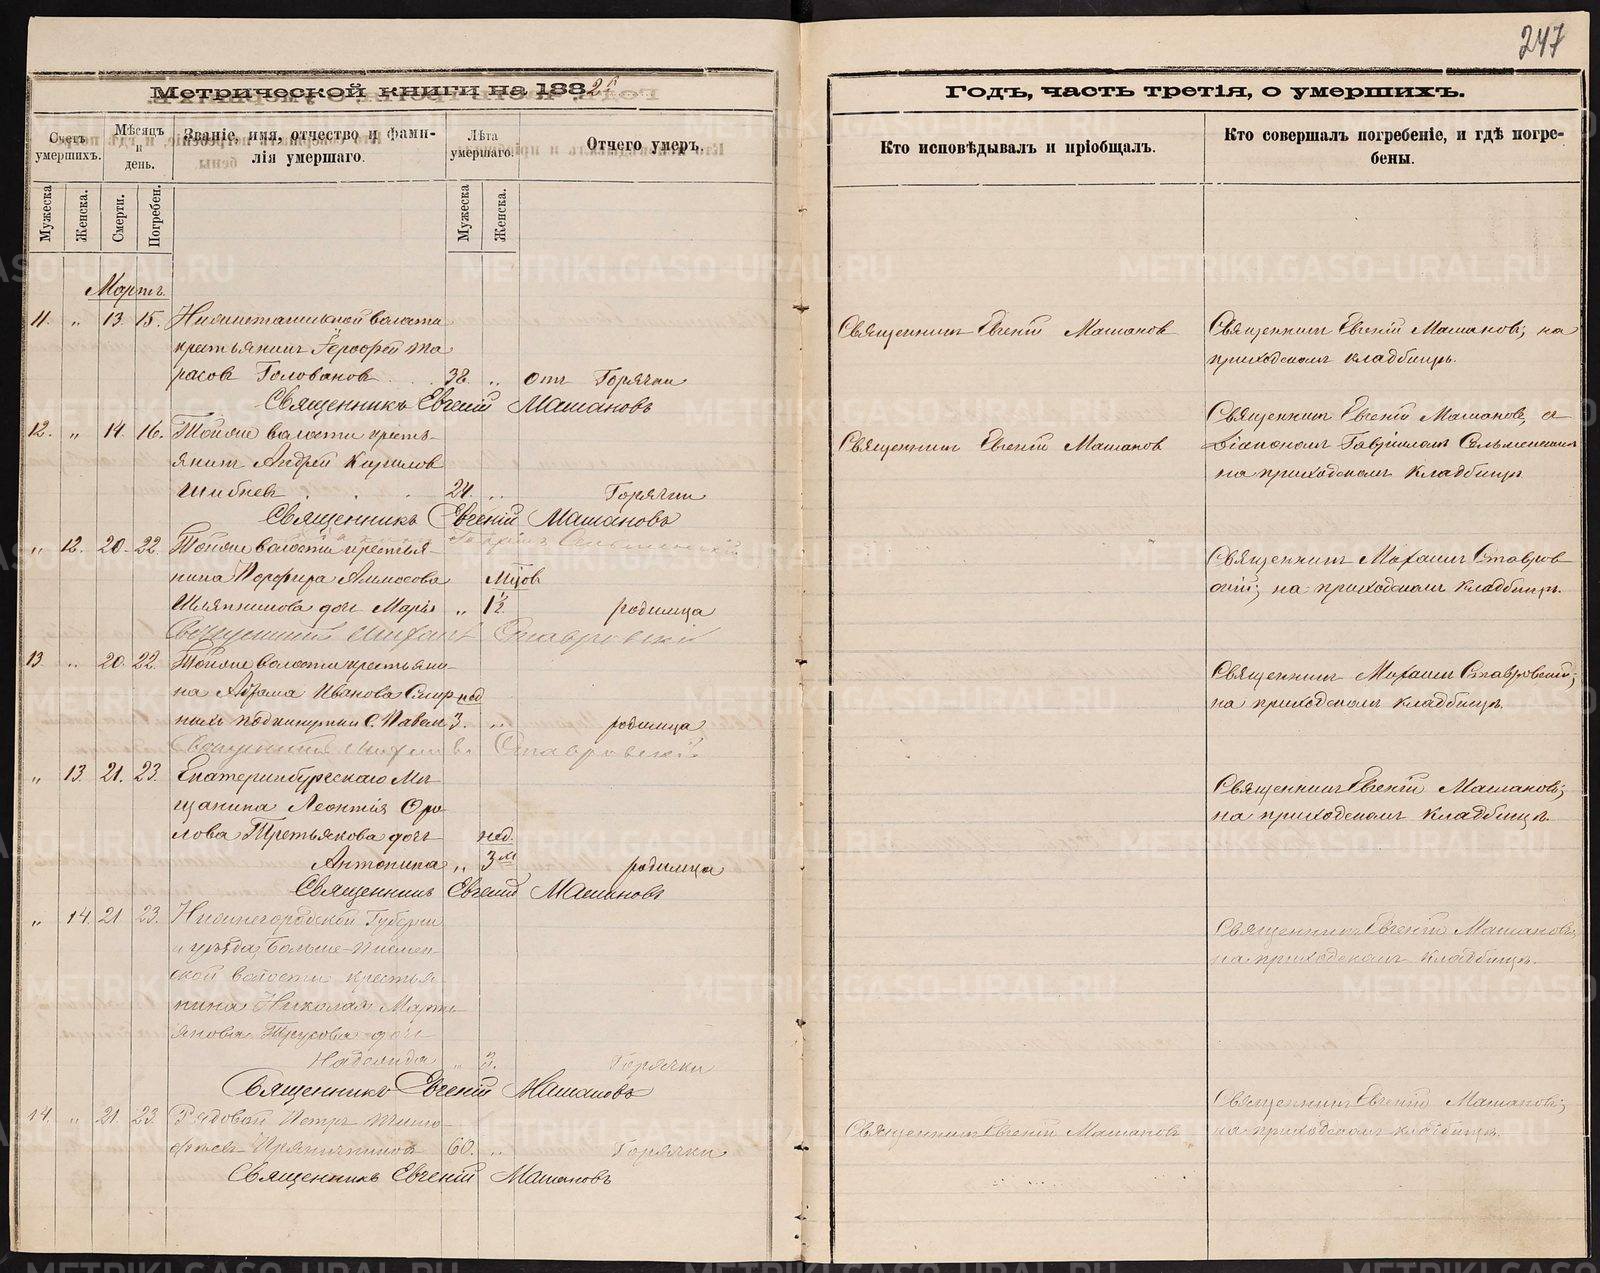 247
Метрической книги на 1882
Годъ, часть третія, о умершихъ.
Счетъ умершихъ.
Мѣсяцъ и день.
Званіе, имя, отчество и фами-
лія умершаго.
Лѣта умершаго.
Отчего умеръ.
Кто исповѣдывалъ и пріобщалъ.
Кто совершалъ погребеніе, и гдѣ погре-
бены.
Мужеска
Женска.
Смерти.
Погребен.
Мужеска
Женска.
Мартъ.
11. „ 13. 15.
крестьянинъ Ѓерофей Та
расовъ Головановъ 38. „ отъ Горячки
Священникъ Евгеній Машановъ
Священникъ Евгеній Машановъ
Священникъ Евгеній Машановъ; на
приходскомъ кладбищѣ.
12. „ 14. 16. Тойже волости кресть-
янинъ Андрей Кириловъ
Шибневъ 24. „ Горячки
Священникъ Евгеній Машановъ
Священникъ Евгеній Машановъ
Священникъ Евгеній Машановъ, съ
Діакономъ Гавріиломъ
на приходскомъ кладбищѣ
„ 12. 20. 22. Тойже волости крестья-
нина Порфира мцов
Шляпникова дочь Марія „ 1½ родимца
Священникъ Михаилъ Ставровскій
Священникъ Михаилъ Ставров
скій; на приходскомъ кладбищѣ.
13. „ 20. 22. Тойже волости крестьяни-
на Абрама Иванова нед
подкинутый С. Павелъ 3. „ родимца
Священникъ Михаилъ Ставровскій
Священникъ Михаилъ Ставровскій;
на приходскомъ кладбищѣ.
„ 13. 21. 23. Екатеринбургскаго Мѣ-
щанина Леонтія Фро-
лова Третьякова дочь нед.
Антонина „ 3 родимца
Священникъ Евгеній Машановъ
Священникъ Евгеній Машановъ;
на приходскомъ кладбищѣ.
„ 14. 21. 23. Нижегородской Губерніи
и уѣзда, Больше-
ской волости крестья
нина Николая Марть
янова Трусова дочь
Надежда „ 3. Горячки
Священникъ Евгеній Машановъ
Священникъ Евгеній Машановъ;
на приходскомъ кладбищѣ.
14. „ 21. 23. Рядовой Петръ Тимо-
феевъ Пряничниковъ 60. „ Горячки
Священникъ Евгеній Машановъ
Священникъ Евгеній Машановъ
Священникъ Евгеній Машановъ;
на приходскомъ кладбищѣ.
METRIKI.GASO-URAL.RU